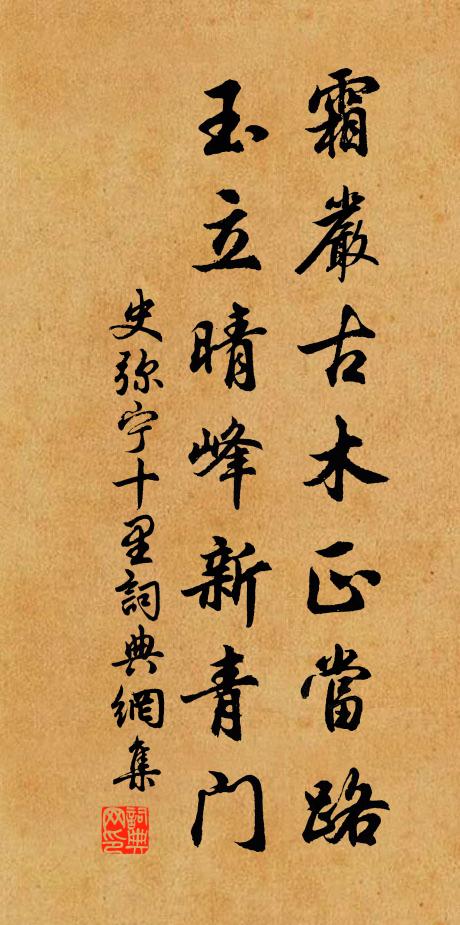 霜嚴古木正當路
玉立晴峰新青门
史弥宁十里詞典網集
詞典网印